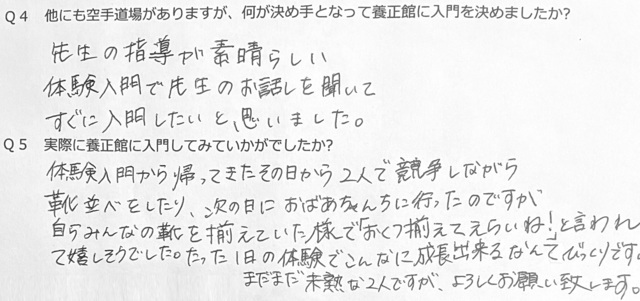 Q4 他にも空手道場がありますが、何が決め手となって養正館に入門を決めましたか?
先生の指導が素晴らしい
体験入門で先生のお話しを聞いて
すぐに入門したいと思いました。
Q5 実際に養正館に入門してみていかがでしたか?
体験入門から帰ってきたその日から2人で競争しながら
靴並べをしたり、次の日におばあちゃんちに行ったのですが
自らみんなの靴を揃えていた様で「おくつ揃えてえらいね!」と言われ
て嬉しそうでした。たった1日の体験でこんなに成長出来るなんてびっくりです。
まだまだ未熟な2人ですが、よろしくお願い致します。